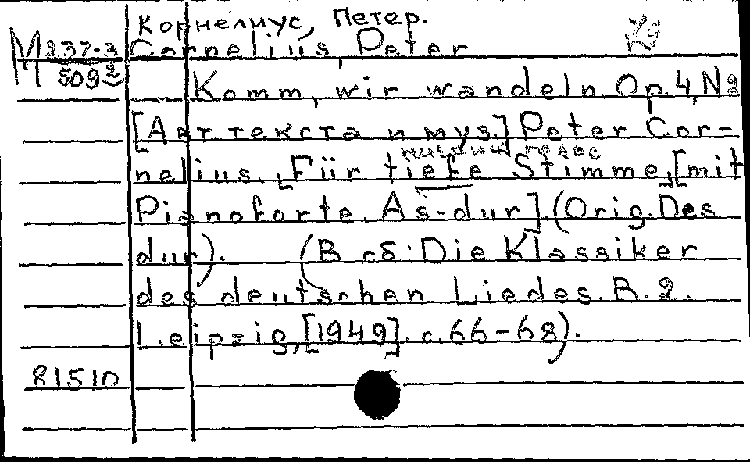 Корнелиус, Петер.
М 237-3 Cornelius, Peter
509
Komm, wir wandeln Op. 4, № 2
[Авт текста и муз.] Peter Cor-
низкий голос
nelius. Für tiefe Stimme, [mit
Pianoforte. As-dur]. (Orig. Des
dur). (В сб: Die Klassiker
des deutschen Liedes. B. 2.
Leipzig, [1949]. с. 66-68).
81510